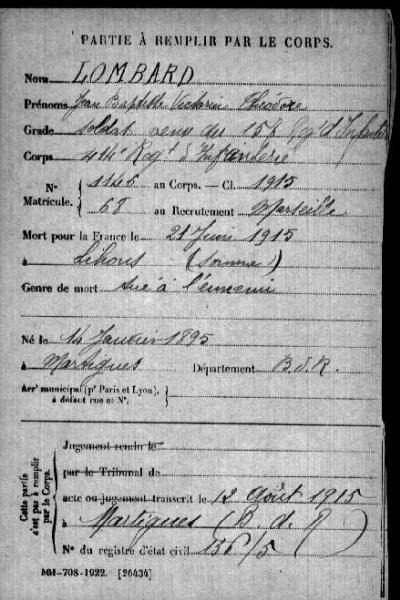 PARTIE À REMPLIR PAR LE CORPS.
Nom LOMBARD
Prénoms Jean Baptiste Victorin Théodore
Grade soldat venu du 158 Regt d'Infanterie
Corps 414e Regt d'Infanterie
N° Matricule. { 1146 au Corps. — Cl. 1915
68 au Recrutement Marseille
Mort pour la France le 21 Juin 1915
à Lihons (Somme)
Genre de mort tué à l'ennemi
Né le 14 Janvier 1895
à Martigues Département B.d.R.
Arrt municipal (pr Paris et Lyon), à défaut rue et N°. }
Cette partie n'est pas à remplir par le Corps.
Jugement rendu le
par le Tribunal de
acte ou jugement transcrit le 12 Août 1915
à Martigues (B. d. R)
N° du registre d'état civil 136/5
101-708-1922. [26434]